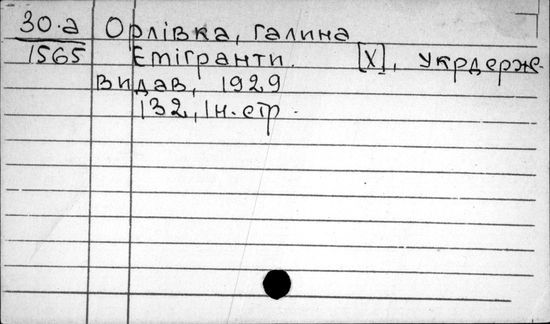 30·а Орлівка, Галина
1565 Емігранти. [Х], Укрдерж-
видав, 1929
132, 1 н. стр.